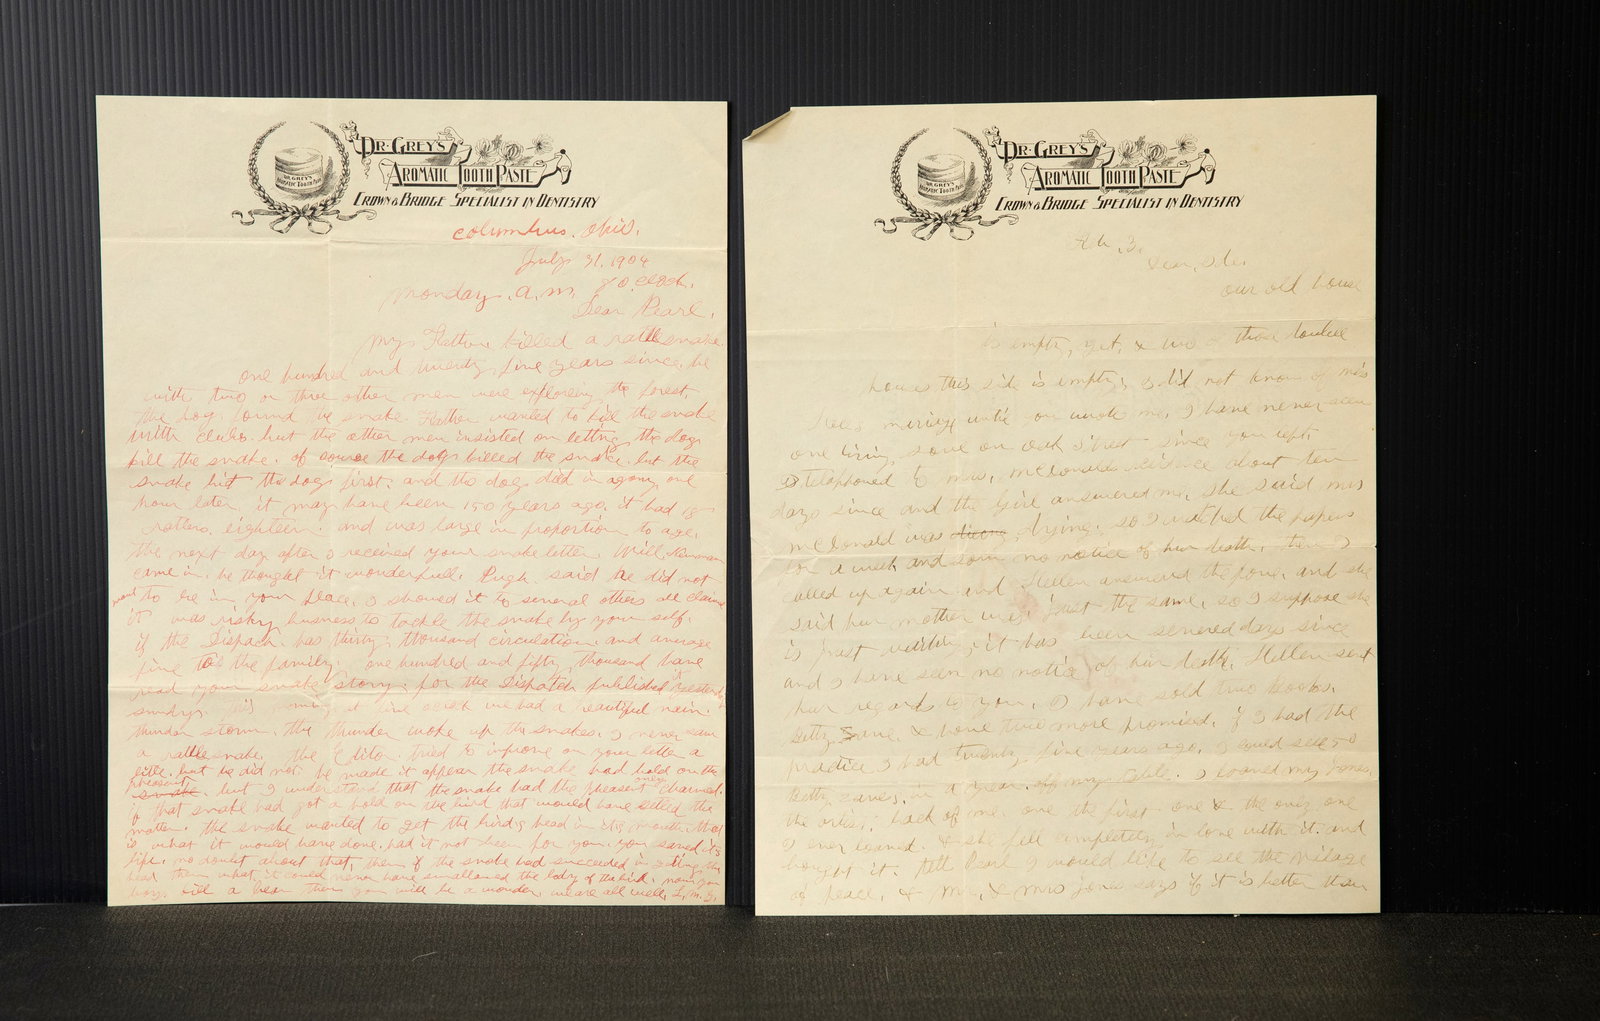 DR. GREY'S
AROMATIC TOOTH PASTE
DR. GREY'S
AROMATIC TOOTH PASTE
CROWN & BRIDGE SPECIALIST IN DENTISTRY
Columbus. Ohio.
July 31, 1904
Monday. a.m. 8 o.clock.
Dear Pearl.
my Father killed a rattlesnake
one hundred and twenty, five years since. he
with two or three other men were exploring the forest.
the dogs found the snake. Father wanted to kill the snake
with clubs. but the other men insisted on letting the dogs
kill the snake. of course the dogs killed the snake. but the
snake bit the dogs first. and the dogs died in agony one
hour later. it may have been 150 years ago. it had 18
rattlers. eighteen. and was large in proportion to age.
the next day after I received your snake letter. Will
came in. he thought it wonderfull. Pugh. said he did not
want to be in your place. I showed it to several others all claim
it was risky business to tackle the snake by your self.
if the Dispach. has thirty, thousand circulation. and average
five to the family. one hundred and fifty, thousand have
read your snake story. for the Dispatch published it yesterd
sundy. this morning at five oclock we had a beautiful rain.
thunder storm. the thunder woke up the snakes. I never saw
a rattlesnake. the Editor tried to improve on your letter a
little. but he did not. he made it appear the snake had hold on the
pheasant snake. but I understand that the snake had the pheasant charmed.
if that snake had got a hold on the bird that would have settled the
matter. the snake wanted to get the birds head in its mouth. that
is what it would have done. had it not been for you. you saved its
life. no doubt about that. then if the snake had succeeded in
head then what. it could never have swallowed the body of the bird. now you
kill a bear then you will be a wonder. we are all well. L. M. G.
DR. GREY'S
AROMATIC TOOTH PASTE
DR. GREY'S
AROMATIC TOOTH PASTE
CROWN & BRIDGE SPECIALIST IN DENTISTRY
3.
Dear,
our old house
is empty, yet. & two of those double
houses this side is empty, I did not know of
until you wrote me. I have never seen
one living, soul on Oak Street since you left.
I telephoned to Mrs. McDonalds residence about ten
days since and the Girl answered me. she said Mrs
McDonald was dying. so I watched the papers
for a week and no notice of her death. then I
called up again and Hellen answered the fone. and she
said her mother was just the same. so I suppose she
is just it has been several days since
and I have seen no notice of her death. Hellen sent
her regards to you. I have sold two Books.
Betty Zane. & have two more promised. if I had the
practice I had twenty five years ago. I could sell 50
Betty Zanes. in a year. off my table. I loaned my Zane.
the back of me. one the first one & the only one
I ever loaned. & she fell completely in love with it. and
bought it. tell Pearl I would like to see the village
of peace. & Mr. & Mrs Jones says if it is better than